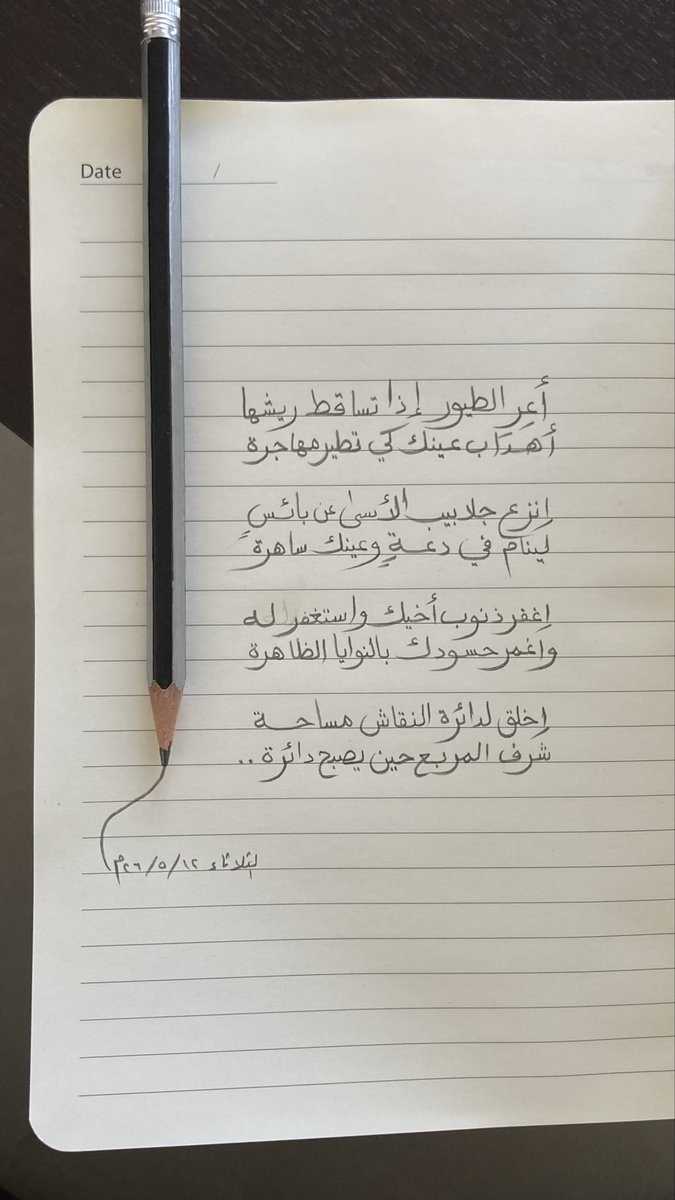 Date /
أَعِرِ الطيور إذا تساقط ريشها
أهدَاب عينك كي تطير مهاجرة
اِنزع جلابيب الأسىٰ عن بائسٍ
لينامَ في دعةٍ وعينك ساهرةً
اِغفر ذنوب أخيك واستغفر له
واغمر حسودك بالنوايا الظاهرة
اِخلق لدائرة النقاش مساحة
شرف المربع حين يصبح دائرة ..
الثلاثاء ١٢/٥/٢٦م